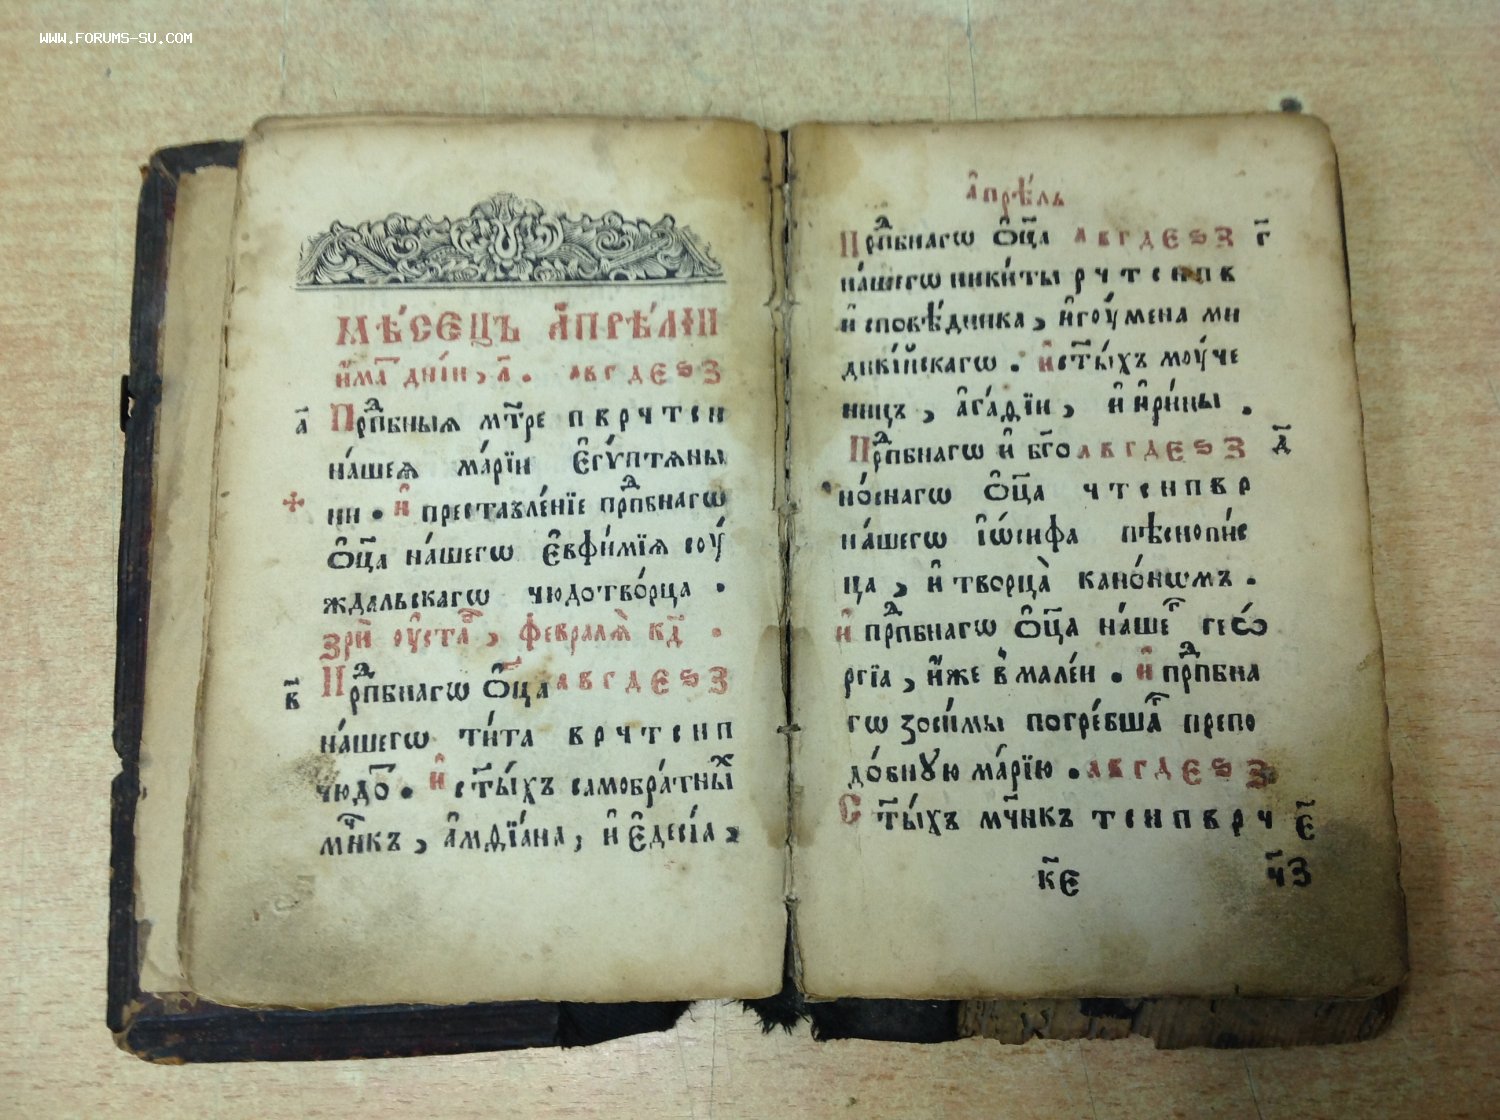 WWW.FORUMS-SU.COM
мѣ́сєцъ а҆прє́лїи
и҆́ма҃ дні́и, л҃. а в г д є ѕ з
а҃ Прⷣпбныѧ мт҃ре п в р ч т с н
на́шеѧ марі́и є҆гѵ́птѧны
ни. и҆ преставле́нїе прⷣпбнагѡ
ѻ҆ц҃а на́шегѡ є҆вфи́мїѧ соу́
ждальскагѡ чюдотво́рца.
зрѝ оу҆ста́в, февралѧ̀ кд҃.
в҃ Прⷣпбнагѡ ѻ҆ц҃а а в г д є ѕ з
на́шегѡ ти́та в р ч т с н п
чюдо҃. и҆ ст҃ы́хъ самобра́тныⷯ
мч҃нкъ, а҆мфїа́на, и҆ є҆десі́а,
а҆прѣ́ль
Прⷣпбнагѡ ѻ҆ц҃а а в г д є ѕ з г҃
на́шегѡ ники́ты р ч т с н п в
и҆сповѣ́дника, и҆гоу́мена ми
дикі́йскагѡ. и҆ ст҃ы́хъ моу́че
ницъ, а҆га́фїи, и҆ и҆ри́ны.
Прⷣпбнагѡ и҆ бг҃о а в г д є ѕ з д҃
но́снагѡ ѻ҆ц҃а ч т с н п в р
на́шегѡ і҆ѡ́сифа пѣснопи́с
ца, и҆ творца̀ кано́нѡмъ.
и҆ прⷣпбнагѡ ѻ҆ц҃а на́шеⷢ геѡ́
ргїа, и҆́же в̾ мале́и. и҆ прⷣпбна
гѡ зоси́мы погре́бшаⷢ препо
до́бнꙋю марі́ю. а в г д є ѕ з
Ст҃ы́хъ мч҃нкъ т с н п в р ч є҃
к҃є ч҃з